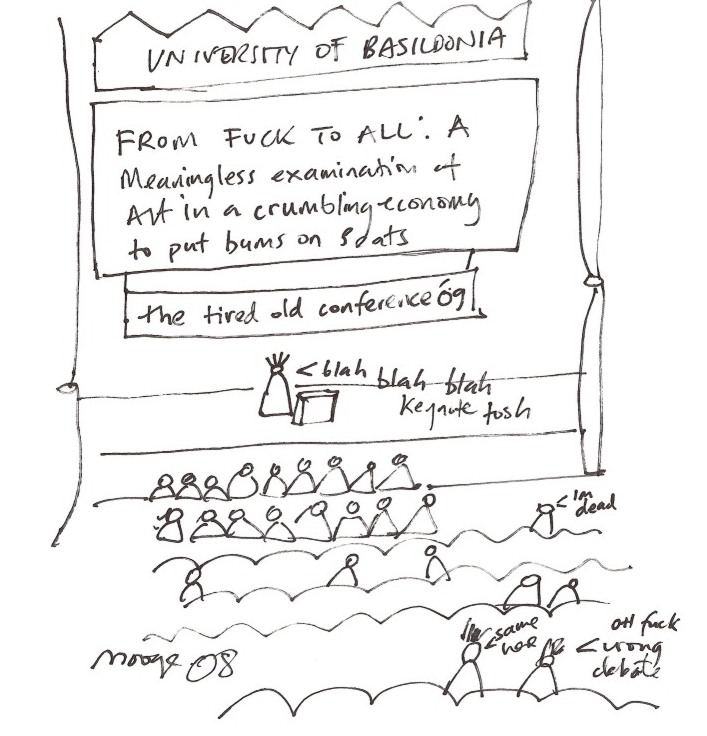 UNIVERSITY OF BASILDONIA
FROM FUCK TO ALL: A
Meaningless examination of
Art in a crumbling economy
to put bums on Seats
the tired old conference 09
<blah blah blah
keynote tosh
<im
dead
<same
here
oh fuck
<wrong
debate
08